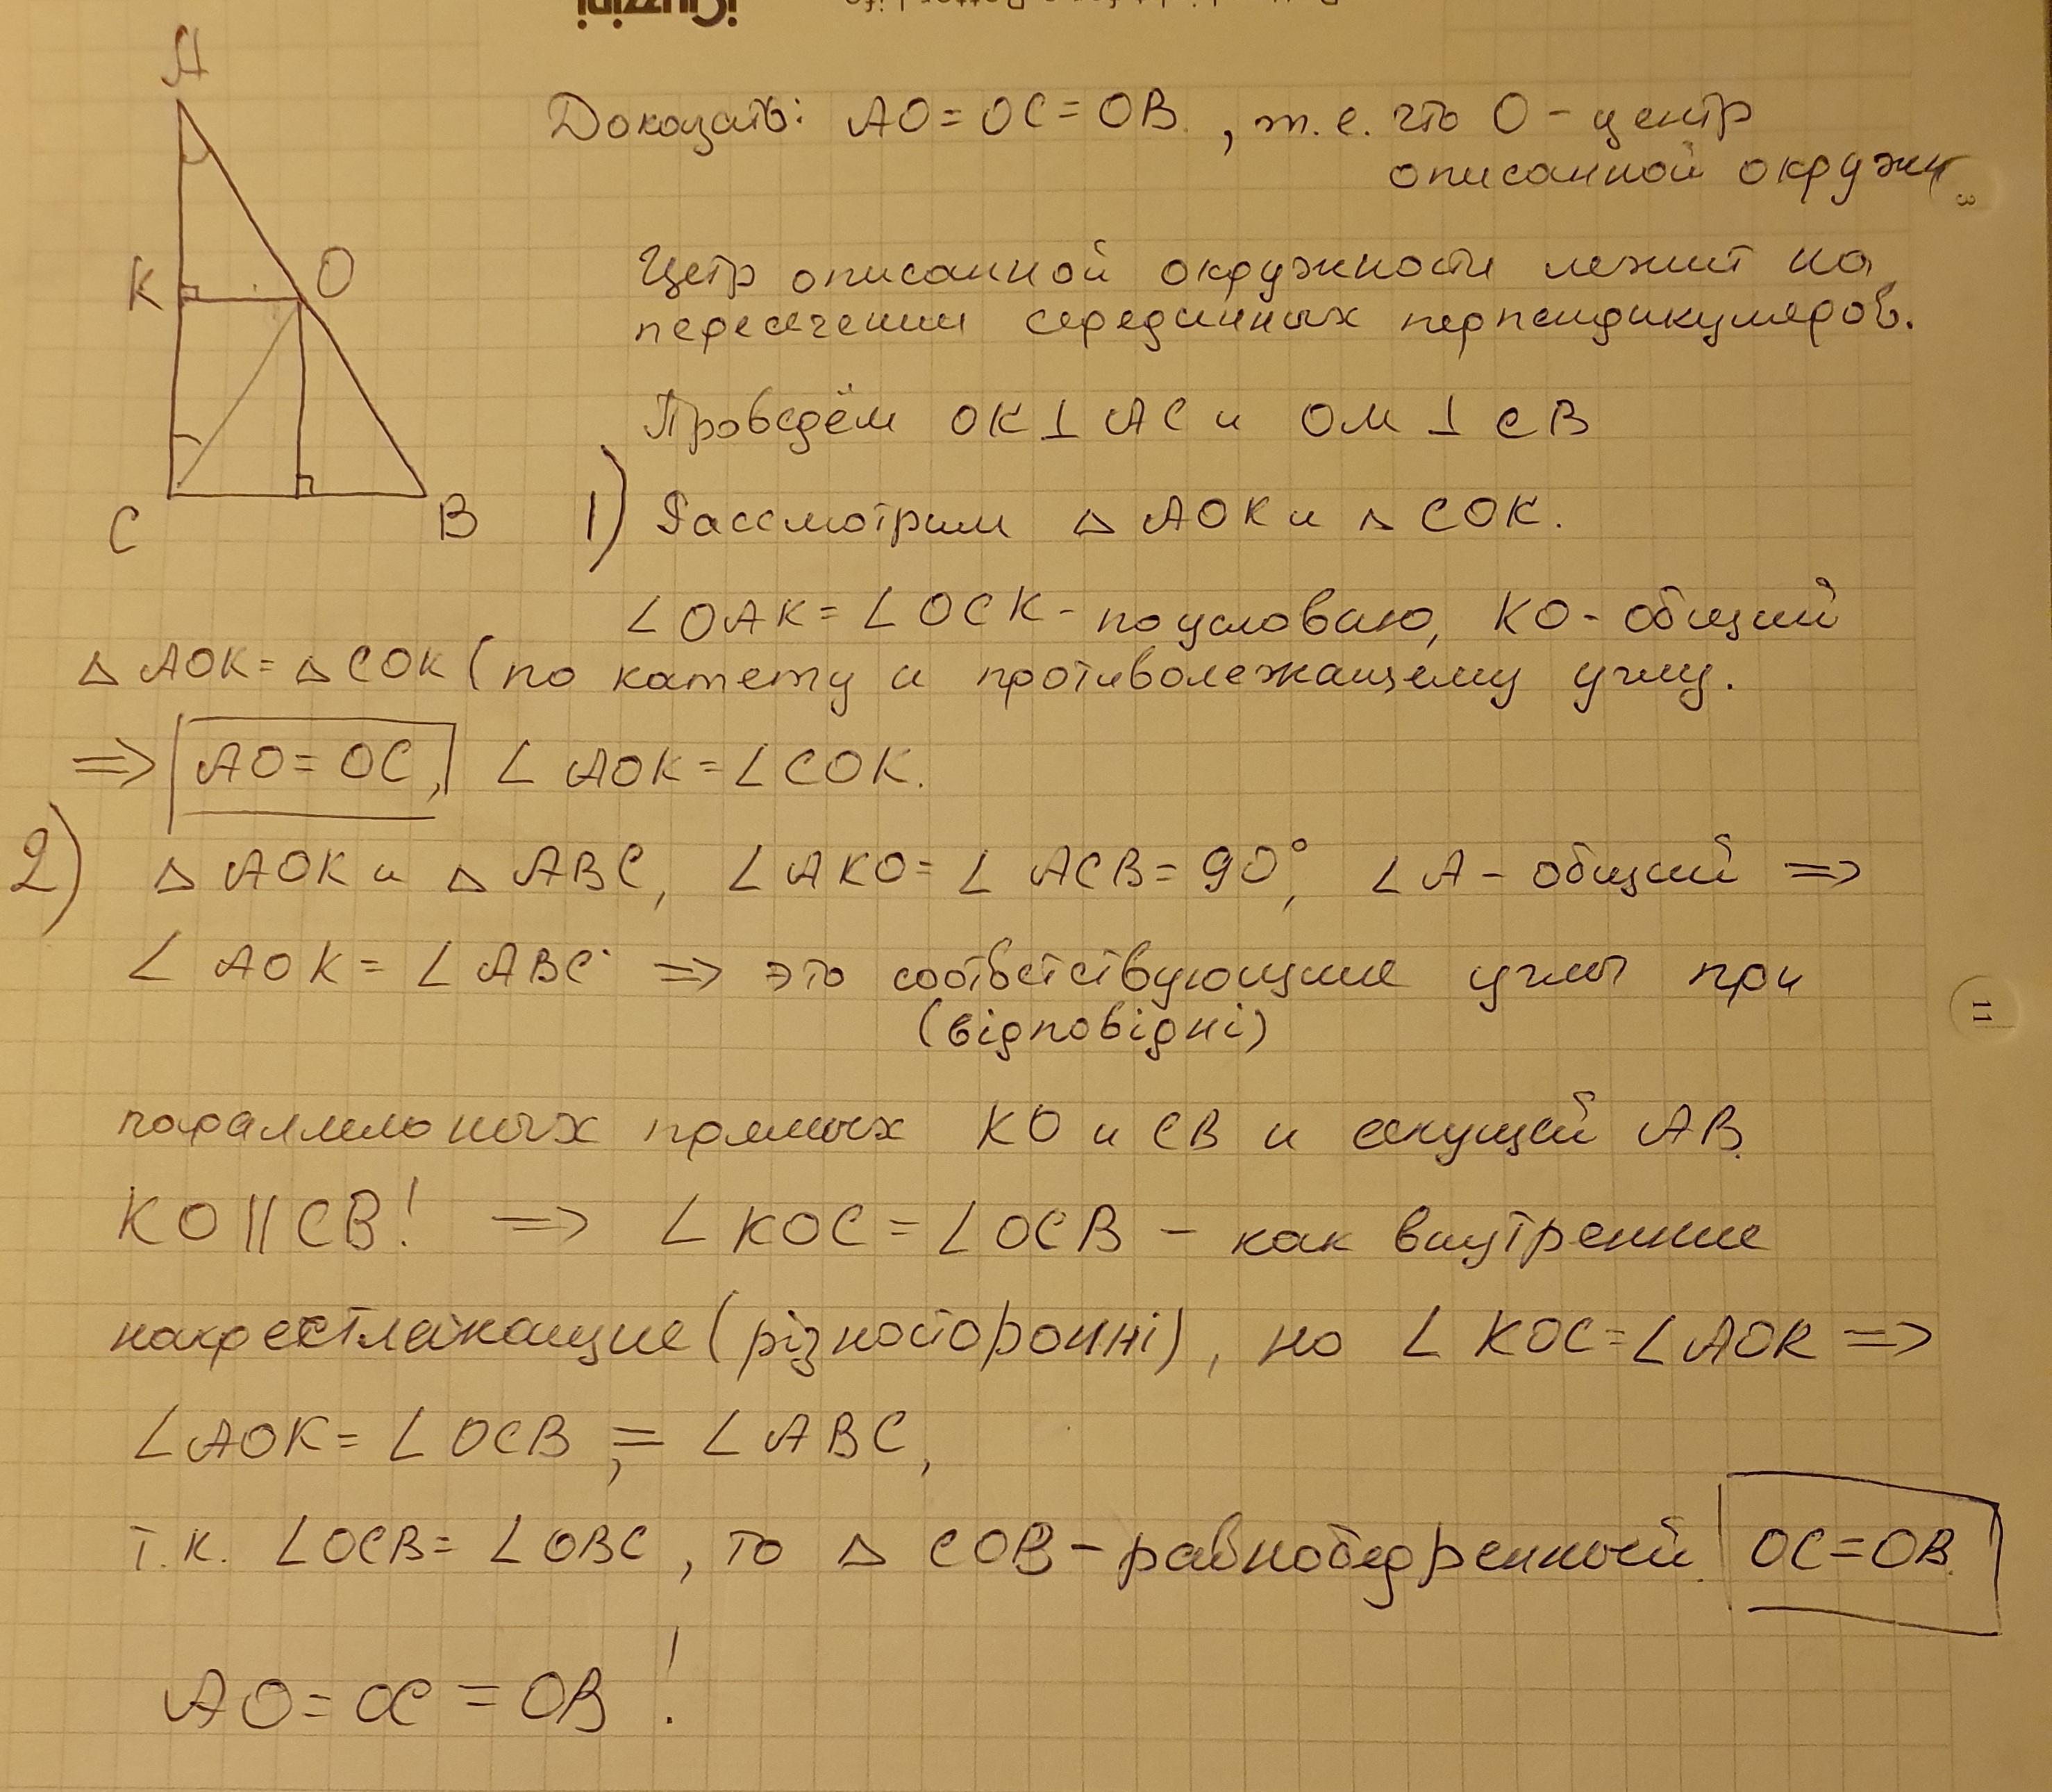 A
Доказать: AO = OC = OB, т.е. что O - центр
описанной окружн
K
O
Цетр описанной окружности лежит на
пересечении серединных перпендикуляров.
Проведём OK ⊥ AC и OM ⊥ CB
C
B
1) Рассмотрим △ AOK и △ COK.
∠ OAK = ∠ OCK - по условию, KO - общий
△ AOK = △ COK (по катету и противолежащему углу.
⇒ AO = OC, ∠ AOK = ∠ COK.
2) △ AOK и △ ABC, ∠ AKO = ∠ ACB = 90°, ∠ A - общий ⇒
∠ AOK = ∠ ABC ⇒ это соответствующие углы при
(відповідні)
11
параллельных прямых KO и CB и секущей AB.
KO || CB! ⇒ ∠ KOC = ∠ OCB - как внутренние
накрестлежащие (різносторонні), но ∠ KOC = ∠ AOK ⇒
∠ AOK = ∠ OCB, = ∠ ABC,
т.к. ∠ OCB = ∠ OBC, то △ COB - равнобедренный. OC = OB.
AO = OC = OB!